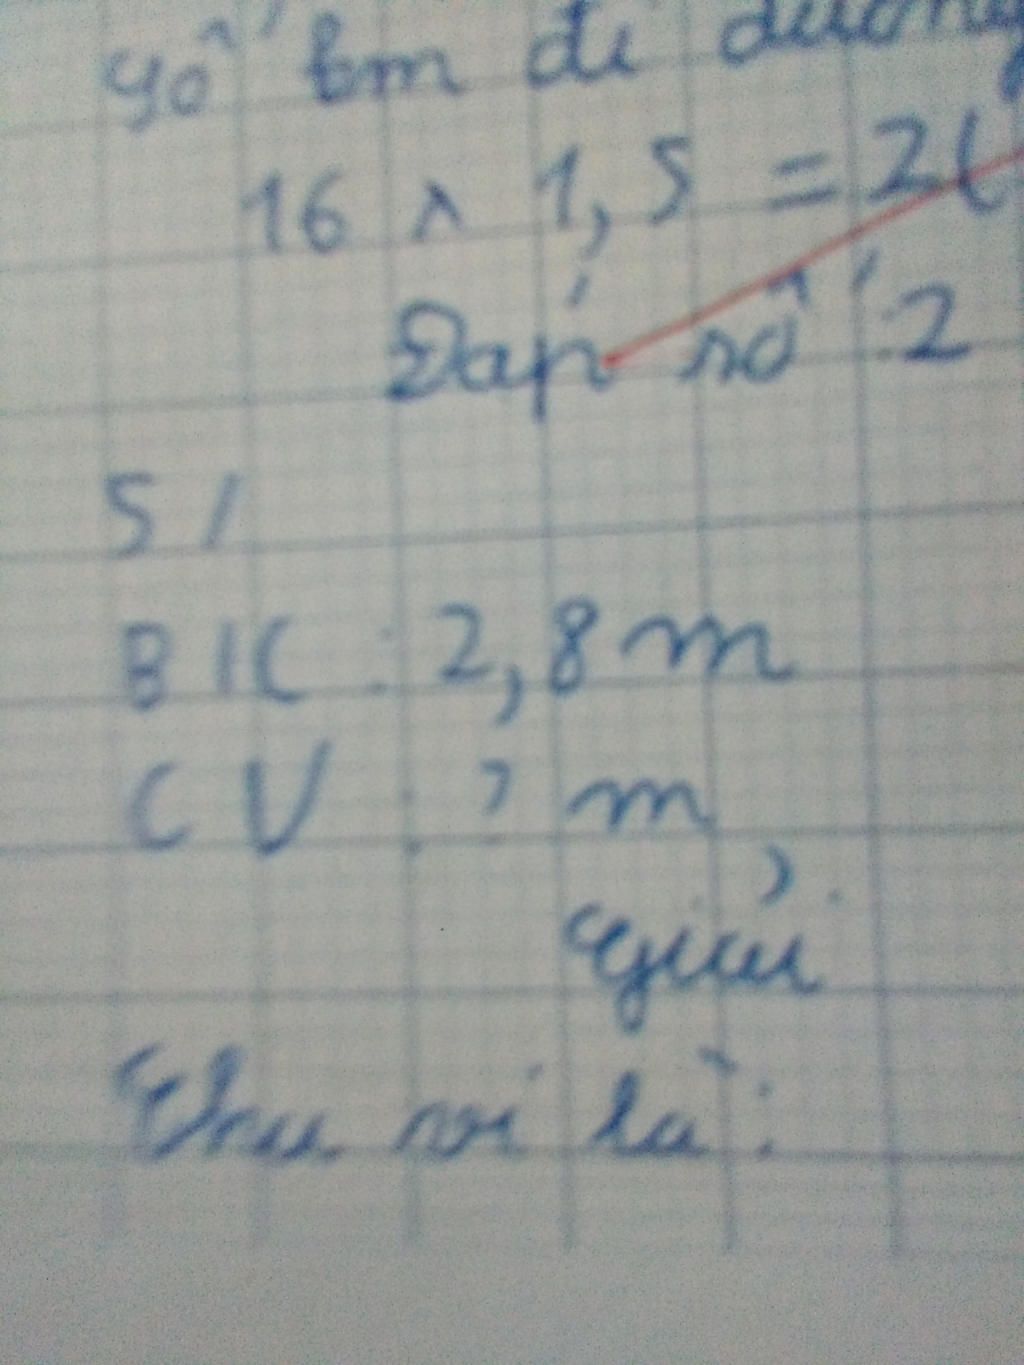 Số km đi được
16 x 1,5 = 2
Đáp số : 2
5 /
BK : 2,8 m
CV : ? m
Giải
Chu vi là :